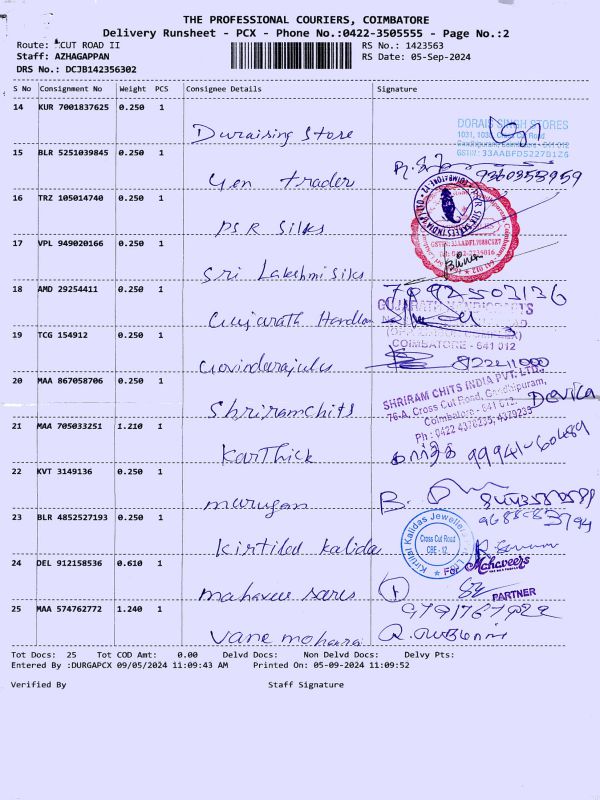 THE PROFESSIONAL COURIERS, COIMBATORE
Delivery Runsheet - PCX - Phone No.:0422-3505555 - Page No.:2
Route: CUT ROAD II RS No.: 1423563
Staff: AZHAGAPPAN RS Date: 05-Sep-2024
DRS No.: DCJB142356302
S No Consignment No Weight PCS Consignee Details Signature
14 KUR 7001837625 0.250 1
Duraising Store
DORAI SINGH STORES
15 BLR 5251039845 0.250 1
Gen trader
9360353959
16 TRZ 105014740 0.250 1
PSR Silks
17 VPL 949020166 0.250 1
Sri Lakshmi Silks
18 AMD 29254411 0.250 1
Gujarath Handloom
GUJARATH
COIMBATORE - 641 012
19 TCG 154912 0.250 1
Govindarajulu
20 MAA 867058706 0.250 1
Shriramchits
SHRIRAM CHITS INDIA PVT. LTD.,
76-A, Cross Cut Road, Gandhipuram,
Coimbatore - 641 012.
Ph : 0422 4376235, 4379235
Devika
21 MAA 705033251 1.210 1
Karthick
கார்த்தி 99941-60689
22 KVT 3149136 0.250 1
murugan
23 BLR 4852527193 0.250 1
Kirtilal Kalidas
Kirtilal Kalidas Jewellers
Cross Cut Road
CBE - 12.
24 DEL 912158536 0.610 1
mahaveer sarees
For Mahaveers
PARTNER
25 MAA 574762772 1.240 1
Vane mohanrai
Tot Docs: 25 Tot COD Amt: 0.00 Delvd Docs: Non Delvd Docs: Delvy Pts:
Entered By :DURGAPCX 09/05/2024 11:09:43 AM Printed On: 05-09-2024 11:09:52
Verified By Staff Signature